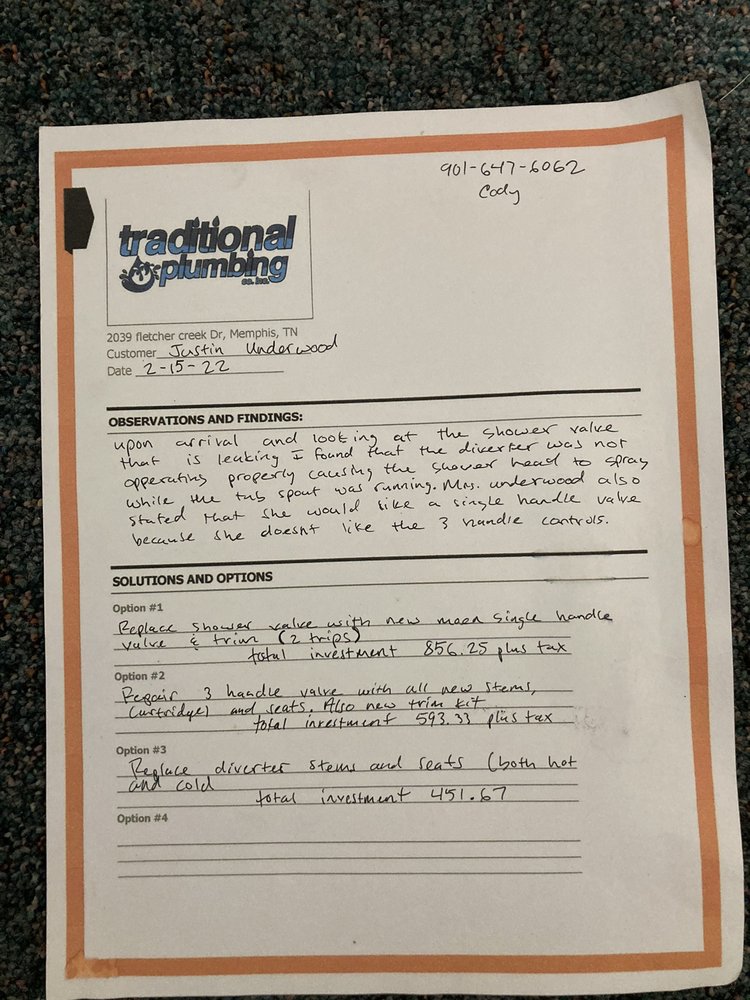 901-647-6062
Cody
traditional
plumbing
co. inc.
2039 fletcher creek Dr, Memphis, TN
Customer Justin Underwood
Date 2-15-22
OBSERVATIONS AND FINDINGS:
upon arrival and looking at the shower valve
that is leaking I found that the diverter was not
opperating properly causing the shower head to spray
while the tub spout was running. Mrs. underwood also
stated that she would like a single handle valve
because she doesnt like the 3 handle controls.
SOLUTIONS AND OPTIONS
Option #1
Replace shower valve with new moen single handle
valve & trim (2 trips)
total investment 856.25 plus tax
Option #2
Repair 3 handle valve with all new stems,
(cartridge) and seats. Also new trim kit
total investment 593.33 plus tax
Option #3
Replace diverter stems and seats (both hot
and cold
total investment 451.67
Option #4